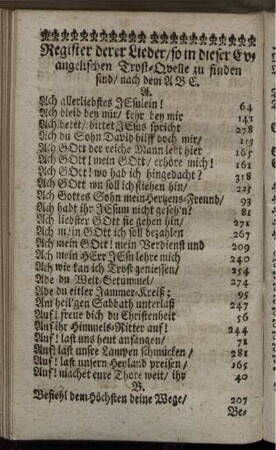 Register derer Lieder/ so in dieser Ev-
angelischen Trost-Qvelle zu finden
sind/ nach dem A B C.
A.
Ach allerliebstes JEsulein! 64
Ach bleib bey mir/ kehr bey mir 141
Ach betet/ bittet JEsus spricht 278
Ach du Sohn David hilff doch mir/ 119
Ach GOtt der reiche Mann lebt hier 165
Ach GOtt! mein GOtt/ erhöre mich! 161
Ach GOtt! wo hab ich hingedacht? 318
Ach GOtt wo soll ich fliehen hin/ 223
Ach Gottes Sohn mein Hertzens-Freund/ 93
Ach habt ihr JEsum nicht geseh'n? 81
Ach liebster GOtt sie gehen hin/ 271
Ach mein GOtt ich soll bezahlen 267
Ach mein GOtt! mein Verdienst und 209
Ach mein HErr JEsu lehre mich 240
Ach wie kan ich Trost geniessen/ 254
Ade du Welt-Getümmel/ 274
Ade du eitler Jammer-Kreiß: 95
Am heil'gen Sabbath unterlaß 247
Auf! freue dich du Christenheit 56
Auf ihr Himmels-Ritter auf! 244
Auf! last uns heut anfangen/ 71
Auf! last unsre Lampen schmücken/ 281
Auf! last unsern Heyland preisen/ 165
Auf! machet eure Thore weit/ ihr 40
B.
Befiehl dem Höchsten deine Wege/ 207
Be-